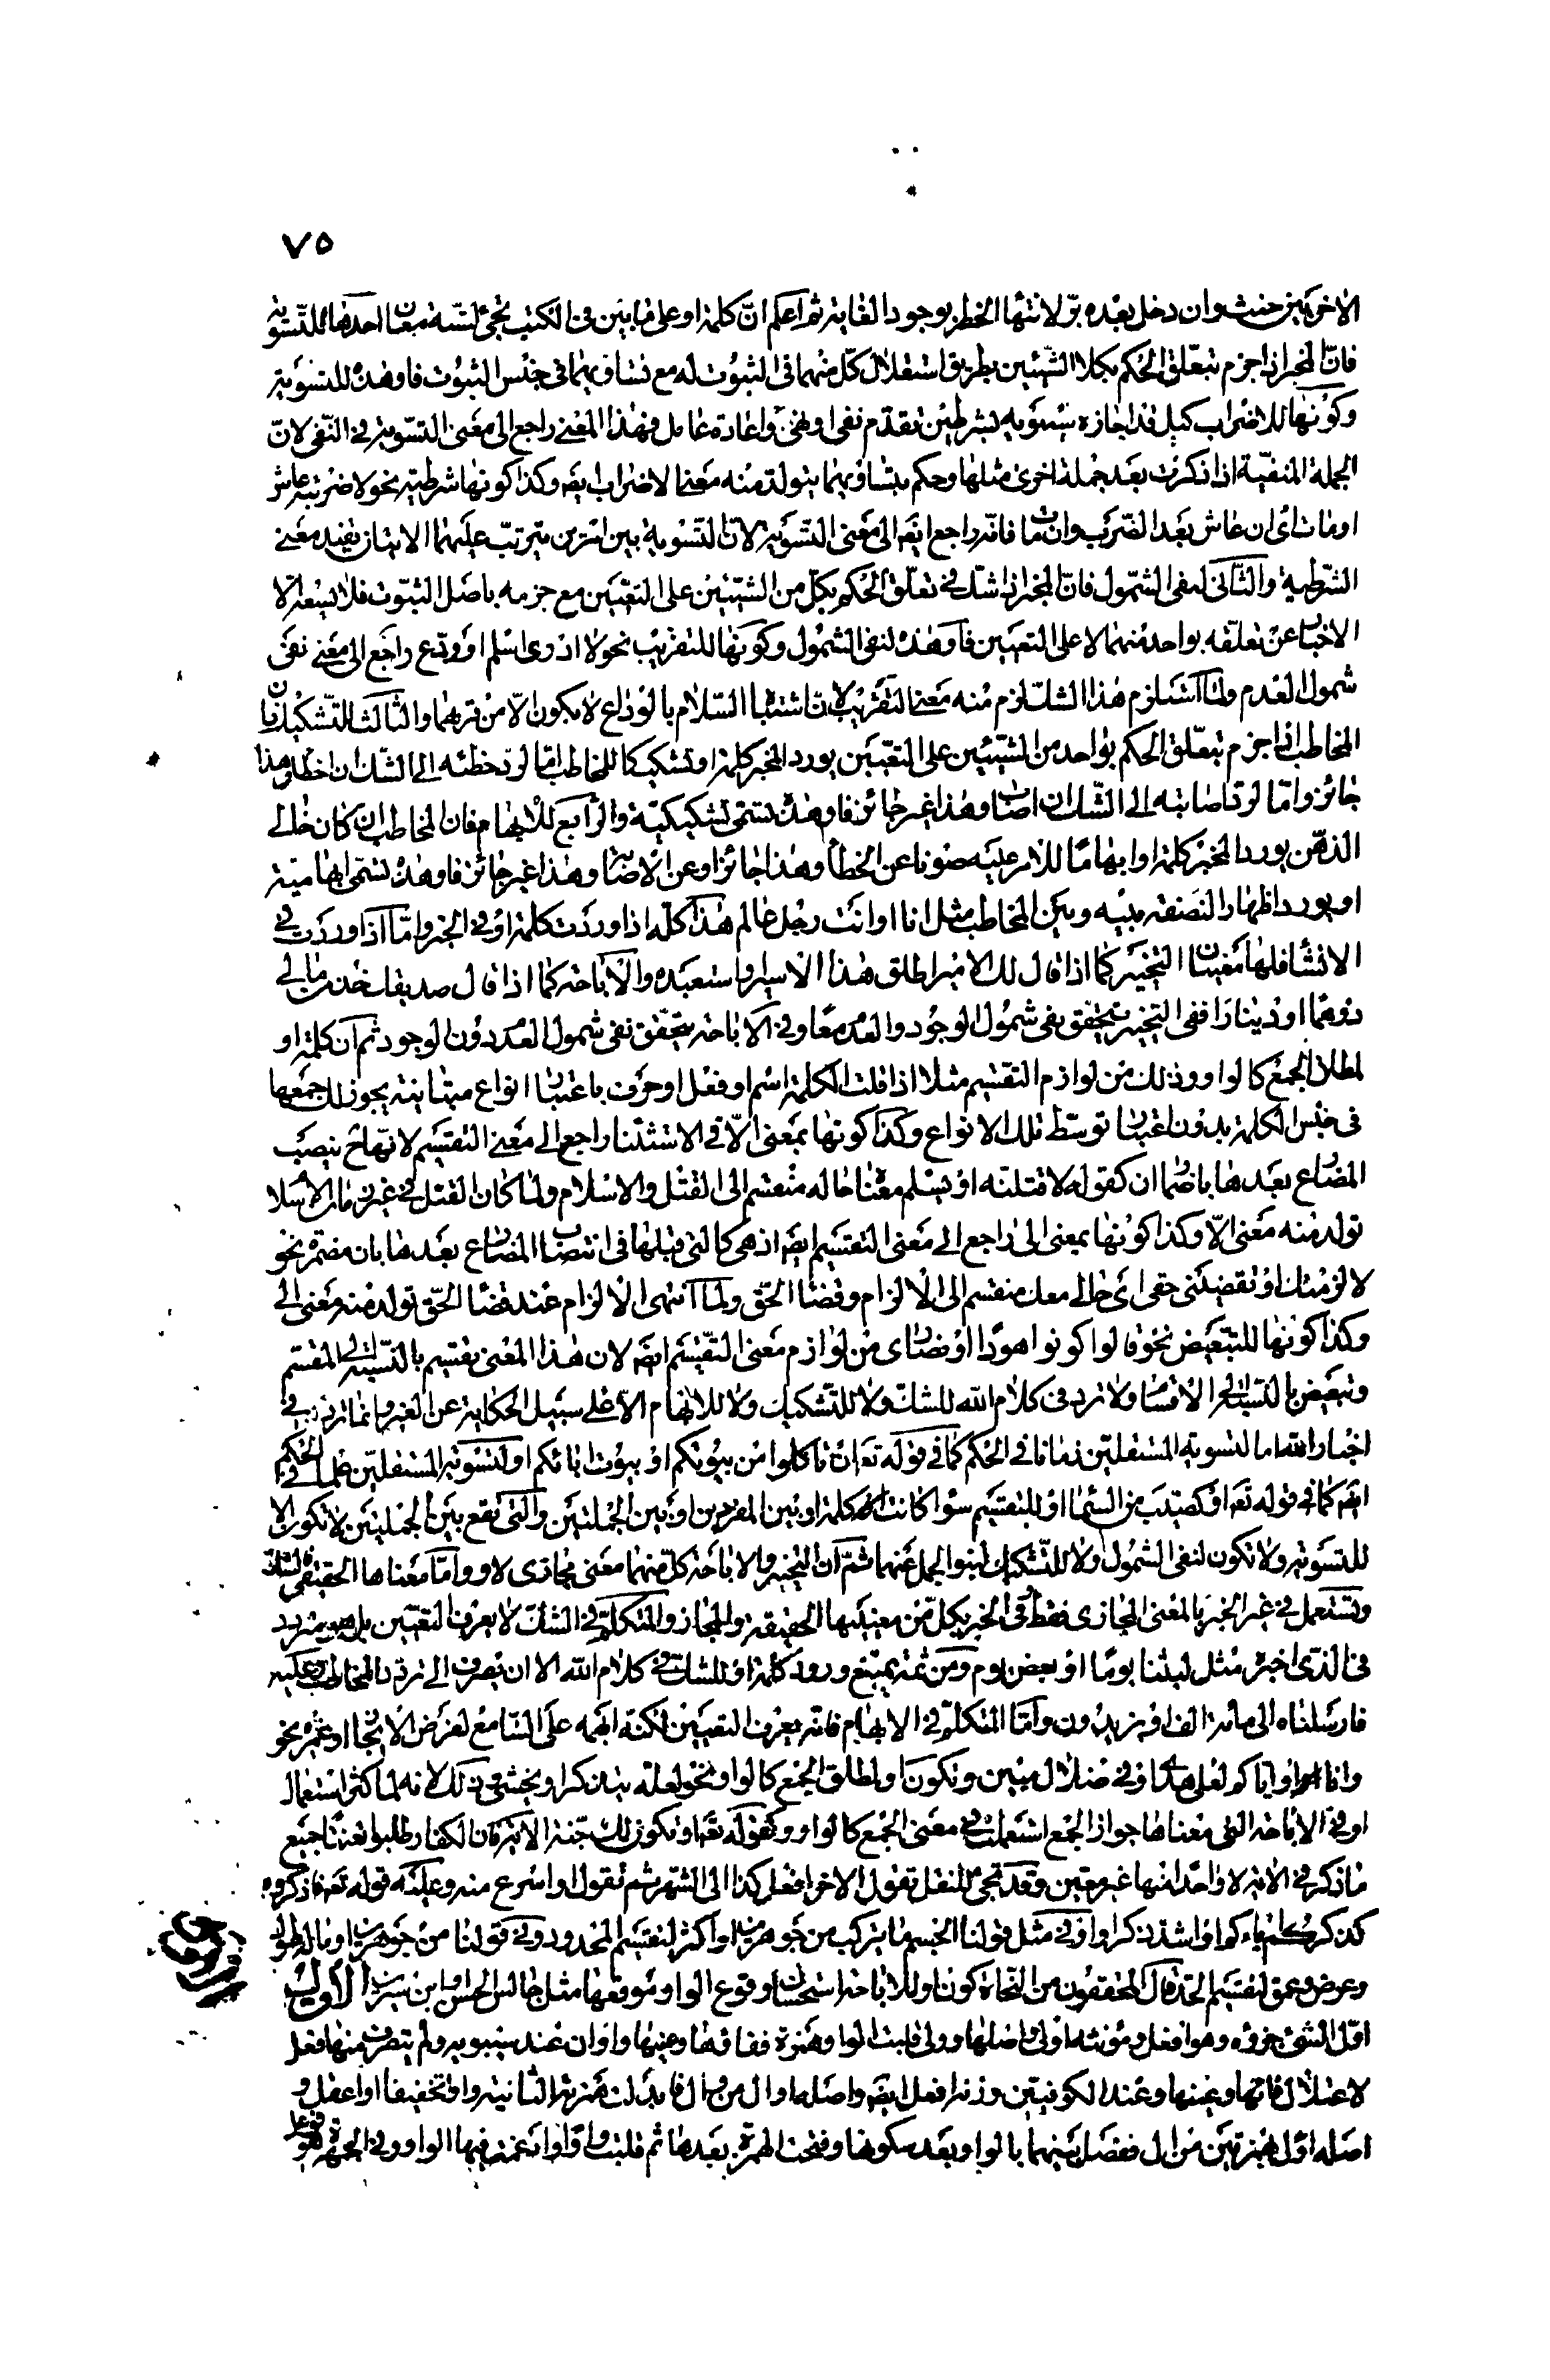 ٧٥
الاخريين حنث وان دخل بعده برّ لانتهاء الخطر بوجود الغاية ثم اعلم انّ كلمة او على ما بيّن في الكتب تجئ لتسعة معان احدها للتسوية
فانّ المخبر اذا جزم بتعلّق الحكم بكلا الشيئين بطريق استقلال كلّ منهما في الثبوت له مع تساويهما في جنس الثبوت فاو هذه للتسوية
وكونها للاضراب كبل قد اجازه سيبويه بشرطين تقدّم نفي او نهي واعادة عامل فهذا المعنى راجع الى معنى التسوية في النفي لانّ
الجملة المنفيّة اذا ذكرت بعد جملة اخرى مثلها وحكم بتساويهما يتولد منه معنى الاضراب ايضا وكذا كونها شرطية نحو لاضربنه عاش
او مات اى ان عاش بعد الضرب وان مات فانّه راجع ايضا الى معنى التسوية لانّ التسوية بين امرين يترتب عليهما الاتيان يفيد معنى
الشرطية والثاني لنفي الشمول فانّ المخبر اذا شكّ في تعلّق الحكم بكلّ من الشيئين على التعيين مع جزمه باصل الثبوت فلا يسعه الّا
الاخبار عن تعلّقه بواحد منهما لا على التعيين فاو هذه لنفي الشمول وكونها للتقريب نحو لا ادري اسلم او ودّع راجع الى معنى نفى
شمول العدم ولما استلزم هذا الشك لزم منه معنى التقريب لان اشتباه السلام بالوداع لا يكون الّا من قربهما والثالث للتشكيك فان
المخاطب اذا جزم بتعلّق الحكم بواحد من الشيئين على التعيين يورد المخبر كلمة او تشكيكا للمخاطب امّا لردّ خطئه الى الشك ان اخطأ وهذا
جائز وامّا لردّ اصابته الى الشك ان اصاب وهذا غير جائز فاو هذه تسمّى تشكيكيّة والرابع للابهام فان المخاطب ان كان خالي
الذهن يورد المخبر كلمة او ابهامًا للامر عليه صونا عن الخطأ وهذا جائز او عن الاصابة وهذا غير جائز فاو هذه تسمّى ابهامية
او يورد اظهار النصفة بينه وبين المخاطب مثل انا او انت رجل عالم هذا كلّه اذا وردت كلمة او في الخبر وامّا اذا وردت في
الانشاء فلها معنيان التخيير كما اذا قال لك الامير اطلق هذا الاسير او استعبده والاباحة كما اذا قال صديقك خذ من مالي
درهمًا او دينارًا ففي التخيير يتحقّق نفي شمول الوجود والعدم معًا وفي الاباحة يتحقّق نفي شمول العدم دون الوجود ثم ان كلمة او
لمطلق الجمع كالواو وذلك من لوازم التقسيم مثلا اذا قلت الكلمة اسم او فعل او حرف باعتبار انواع متباينة يجوز لك جمعها
في جنس الكلمة بدون اعتبار توسّط تلك الانواع وكذا كونها بمعنى الّا في الاستثناء راجع الى معنى التقسيم لانها ح ينصب
المضارع بعدها باضمار ان كقوله لاقتلنّه او يسلم معناه حاله منقسم الى القتل والاسلام ولما كان القتل في غير زمان الاسلام
تولد منه معنى الّا وكذا كونها بمعنى الى راجع الى معنى التقسيم ايضا اذ هي كالتي قبلها في انتصاب المضارع بعدها بان مضمرة نحو
لالزمنك او تقضيني حقي اى حالي معك منقسم الى الالزام وقضاء الحقّ ولما انتهى الالزام عند قضاء الحقّ تولد منه معنى الى
وكذا كونها للتبعيض نحو قالوا كونوا هودًا او نصارى من لوازم معنى التقسيم ايضا لان هذا المعنى تقسيم بالنسبة الى المقسم
وتبعيض بالنسبة الى الاقسام ولا ترد في كلام الله للشك ولا للتشكيك ولا للابهام الّا على سبيل الحكاية عن الغير وانما ترد في
اخبار الله اما لتسوية المستقلين زمانا في الحكم كما في قوله تعالى ان تاكلوا من بيوتكم او بيوت ابائكم او لتسوية المستقلين علما في الحكم
ايضا كما في قوله تعالى او كصيّب من السماء او للتقسيم سواء كانت كلمة او بين المفردين او بين الجملتين والتي تقع بين الجملتين لا تكون الا
للتسوية ولا تكون لنفي الشمول ولا للتشكيك لنبوّ الجمل عنهما ثمّ ان التخيير والاباحة كلّ منهما معنى مجازى لاو وامّا معناها الحقيقي الشك
وتستعمل في غير الخبر بالمعنى المجازى فقط وفي الخبر بكلّ من معنييها الحقيقة والمجاز والمتكلم في الشك لا يعرف التعيين بل هو متردد
في الذي اخبره مثل لبثنا يومًا او بعض يوم ومن ثمة يمتنع ورود كلمة او للشك في كلام الله الا ان يصرف الى تردّد المخاطب وعليه
فارسلناه الى مائة الف او يزيدون وامّا المتكلّم في الابهام فانّه يعرف التعيين لكنّه ابهمه على السامع لغرض الايجاز او غيره نحو
وانا او اياكم لعلى هدى او في ضلال مبين وتكون او لمطلق الجمع كالواو نحو لعله يتذكر او يخشى وذلك لانه لما كثر استعمال
او في الاباحة التي معناها جواز الجمع استعملت في معنى الجمع كالواو وكقوله تعالى او تكون لك جنة الاية فان الكفار طلبوا تعنتا جميع
ما ذكر في الاية لا واحدًا منها غير معين وقد تجئ للنقل تقول لاخر افعل كذا الى الشهر ثم تقول او اسرع منه وعليه قوله تعالى فاذكروا الله
كذكركم اباءكم او اشد ذكرا واو في مثل قولنا الجسم ما يتركب من جوهرين او اكثر لتقسيم المحدود وفي قولنا من جوهرين او ما له طول
وعرض وعمق لتقسيم الحد قال المحققون من النحاة كون او للاباحة استحسان وقوع الواو موقعها مثل جالس الحسن او ابن سيرين الاول
اوّل الشئ جزؤه وهو افعل ومؤنثه اولى واصلها وولى قلبت الواو همزة ففاؤها وعينها واوان عند سيبويه ولم يتصرف منها فعل
لاعتلال فائها وعينها وعند الكوفيين وزنه افعل ايضا واصله اوال من وال فابدلت همزته الثانية واوا تخفيفا او اعفل و
اصله اوّل بهمزتين من ال ففصل بينهما بالواو بعد سكونها وفتحت الهمزة بعدها ثم قلبت واوًا وادغمت فيها الواو وفي الجمهرة هو فوعل